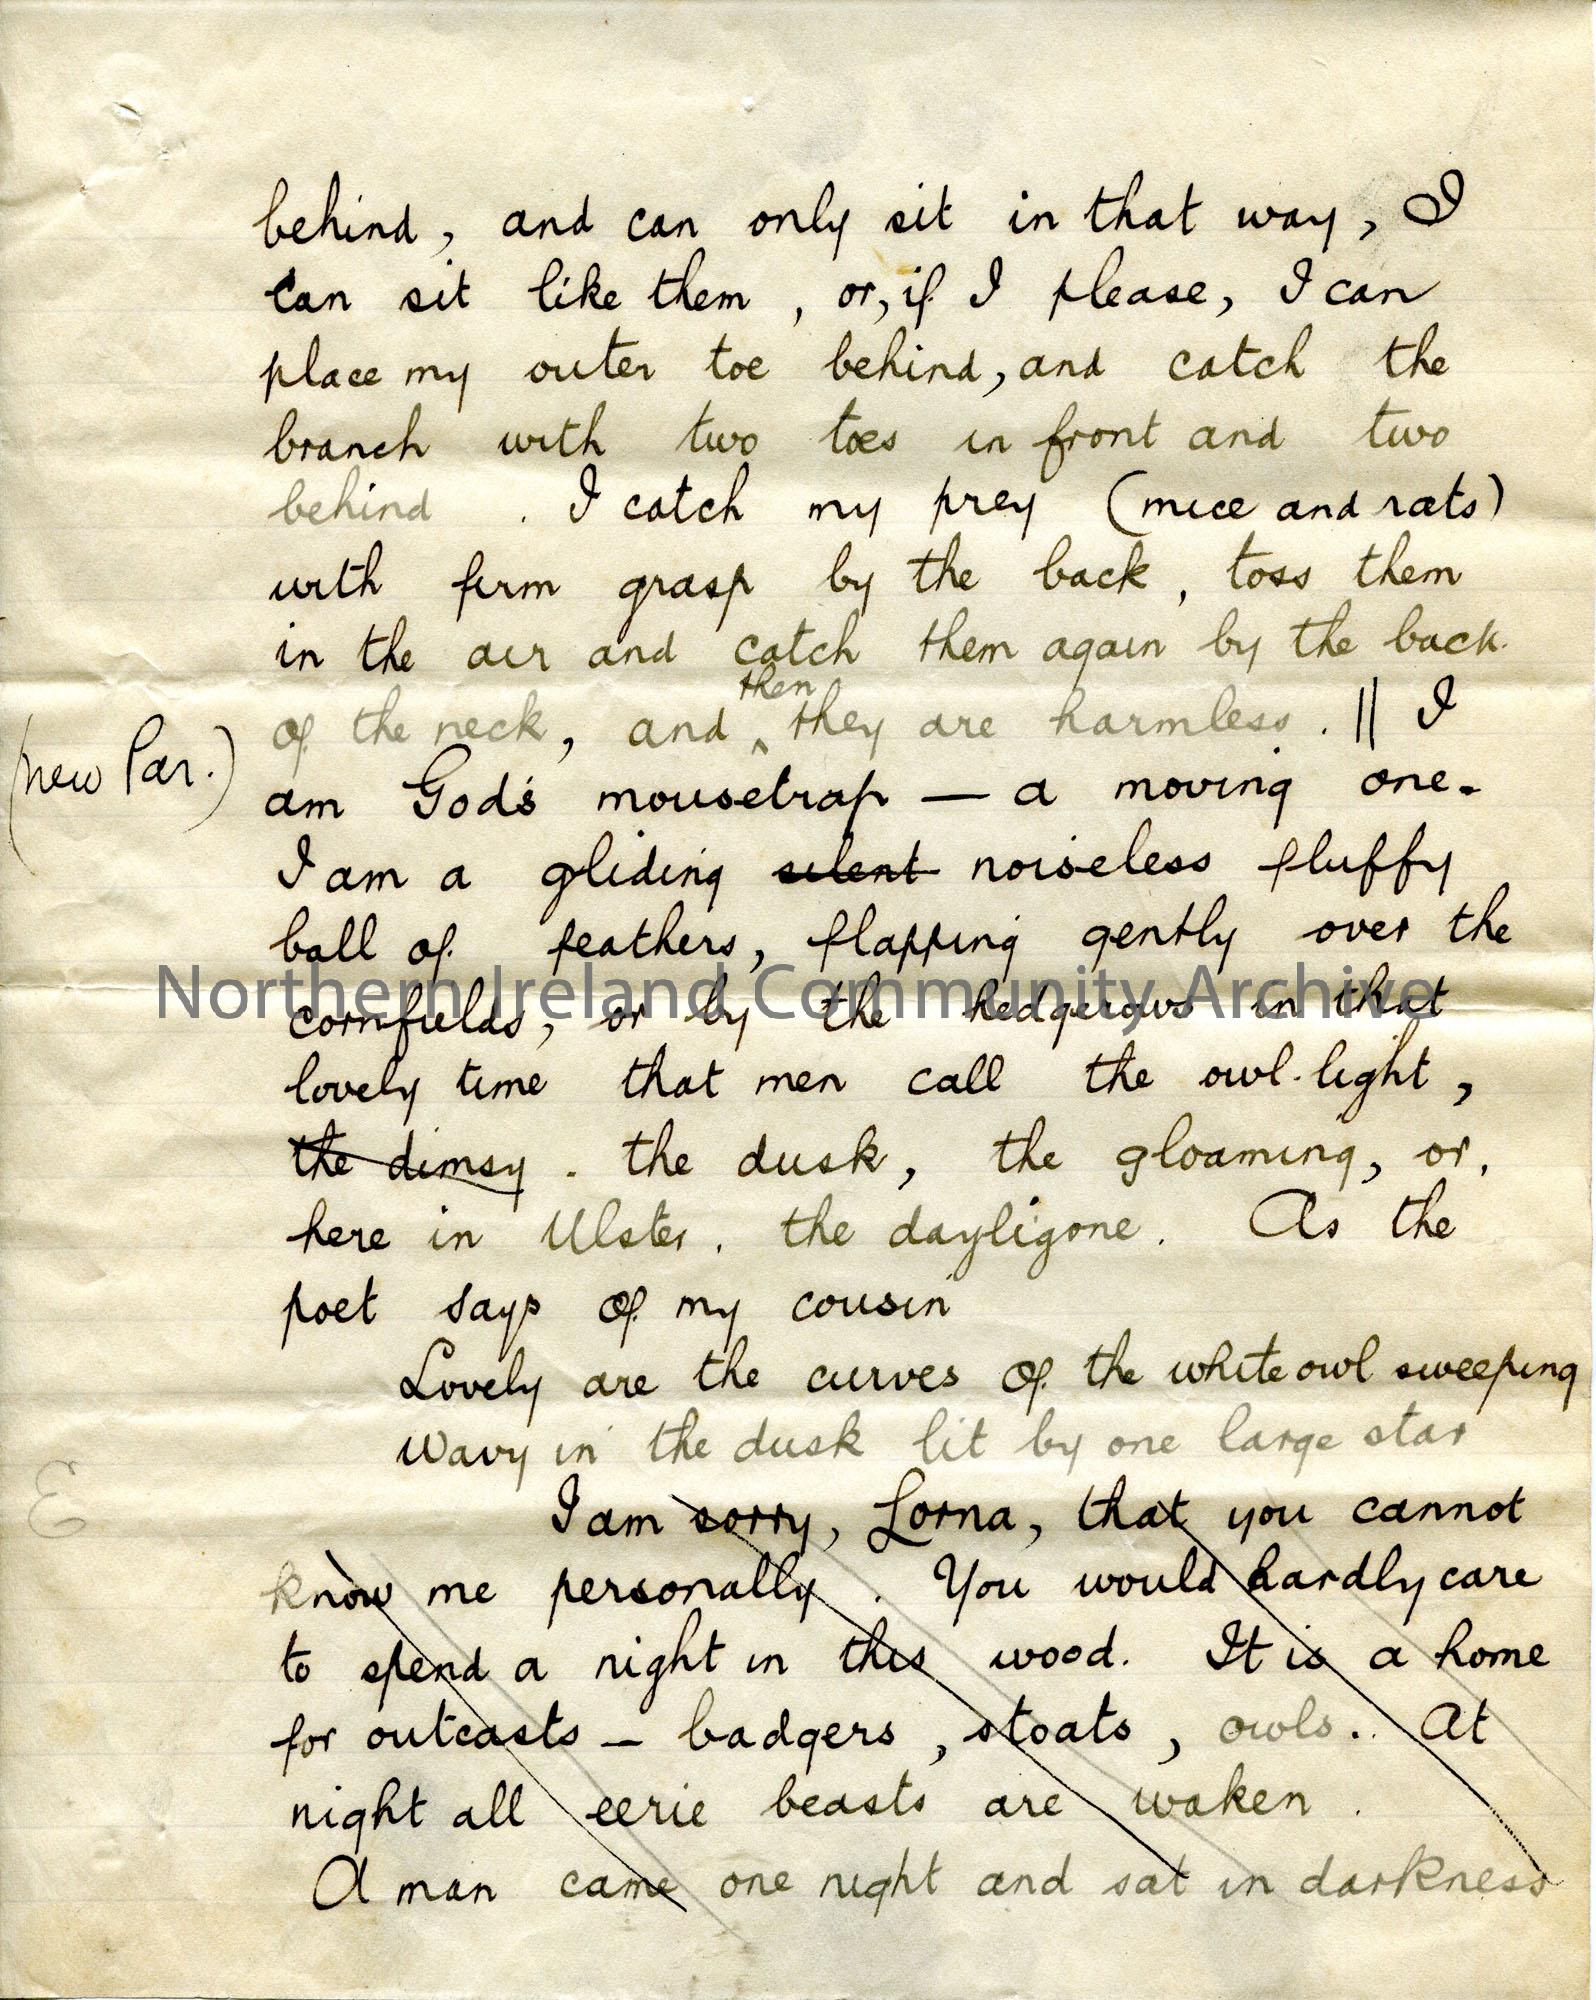 behind, and can only sit in that way, I
can sit like them, or, if I please, I can
place my outer toe behind, and catch the
branch with two toes in front and two
behind. I catch my prey (mice and rats)
with firm grasp by the back, toss them
in the air and catch them again by the back
then
of the neck, and ^ they are harmless. || I
(new Par.)
am God's mousetrap — a moving one.
I am a gliding silent noiseless fluffy
ball of feathers, flapping gently over the
Northern Ireland Community Archive
cornfields, or by the hedgerows in that
lovely time that men call the owl-light,
the dimsy. the dusk, the gloaming, or,
here in Ulster, the dayligone. As the
poet says of my cousin
Lovely are the curves of the white owl sweeping
Wavy in the dusk lit by one large star
I am sorry, Lorna, that you cannot
know me personally. You would hardly care
to spend a night in this wood. It is a home
for outcasts — badgers, stoats, owls. At
night all eerie beasts are waken.
A man came one night and sat in darkness